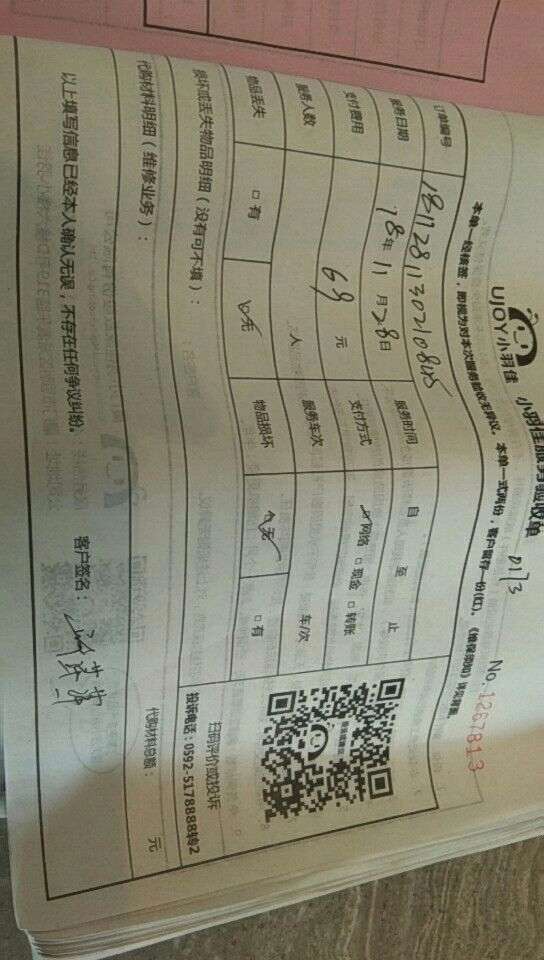 UJOY小羽佳 小羽佳服务验收单 0173
No.1267813
本单一经核签，即视为对本次服务验收无异议。本单一式两份，客户留存一份(红)。《维保须知》详见背面。
订单编号 181128113021084 服务时间 自 至 止
服务日期 18年11月28日 支付方式 ☑网络 □现金 □转账
支付费用 69元 服务车次 车/次
服务人数 人
物品丢失 □有 ☑无 物品损坏 ☑无 □有
损坏或丢失物品明细（没有可不填）：
扫码评价或投诉
投诉电话：0592-5178888转2
代购材料明细（维修业务）：
代购材料总额： 元
以上填写信息已经本人确认无误，不存在任何争议纠纷。 客户签名：